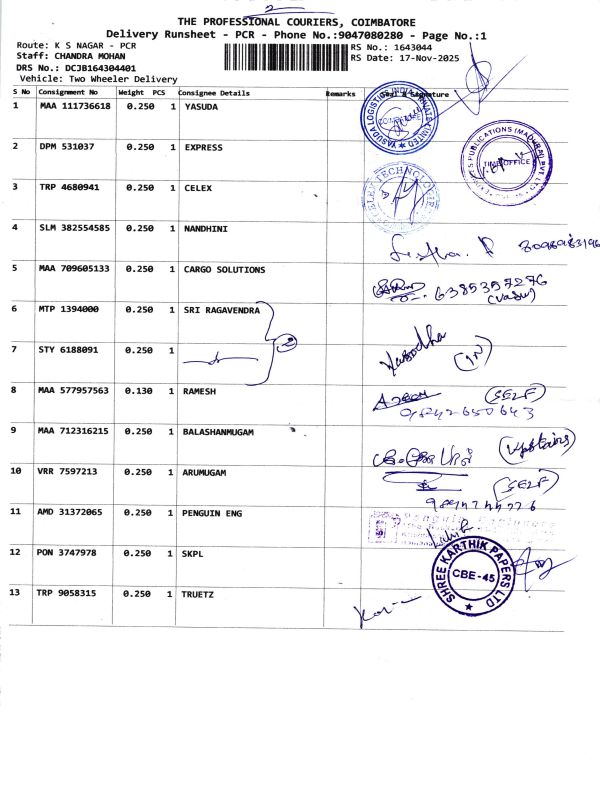 2
THE PROFESSIONAL COURIERS, COIMBATORE
Delivery Runsheet - PCR - Phone No.:9047080280 - Page No.:1
Route: K S NAGAR - PCR
RS No.: 1643044
Staff: CHANDRA MOHAN
RS Date: 17-Nov-2025
DRS No.: DCJB164304401
Vehicle: Two Wheeler Delivery
S No Consignment No Weight PCS Consignee Details Remarks Signature
1 MAA 111736618 0.250 1 YASUDA
YASUDA LOGISTICS INDIA PRIVATE LIMITED
2 DPM 531037 0.250 1 EXPRESS
PUBLICATIONS (MADURAI) PVT. LTD.
TIME OFFICE
3 TRP 4680941 0.250 1 CELEX
CELEX TECHNOLOGIES
4 SLM 382554585 0.250 1 NANDHINI
5 MAA 709605133 0.250 1 CARGO SOLUTIONS
6385357276
(Vasu)
6 MTP 1394000 0.250 1 SRI RAGAVENDRA
2
7 STY 6188091 0.250 1
Yasodha
(IN)
8 MAA 577957563 0.130 1 RAMESH
(SELF)
9 MAA 712316215 0.250 1 BALASHANMUGAM
(Upstairs)
10 VRR 7597213 0.250 1 ARUMUGAM
(SELF)
11 AMD 31372065 0.250 1 PENGUIN ENG
Penguin Engineers
12 PON 3747978 0.250 1 SKPL
SHREE KARTHIK PAPERS LTD
CBE-45
13 TRP 9058315 0.250 1 TRUETZ